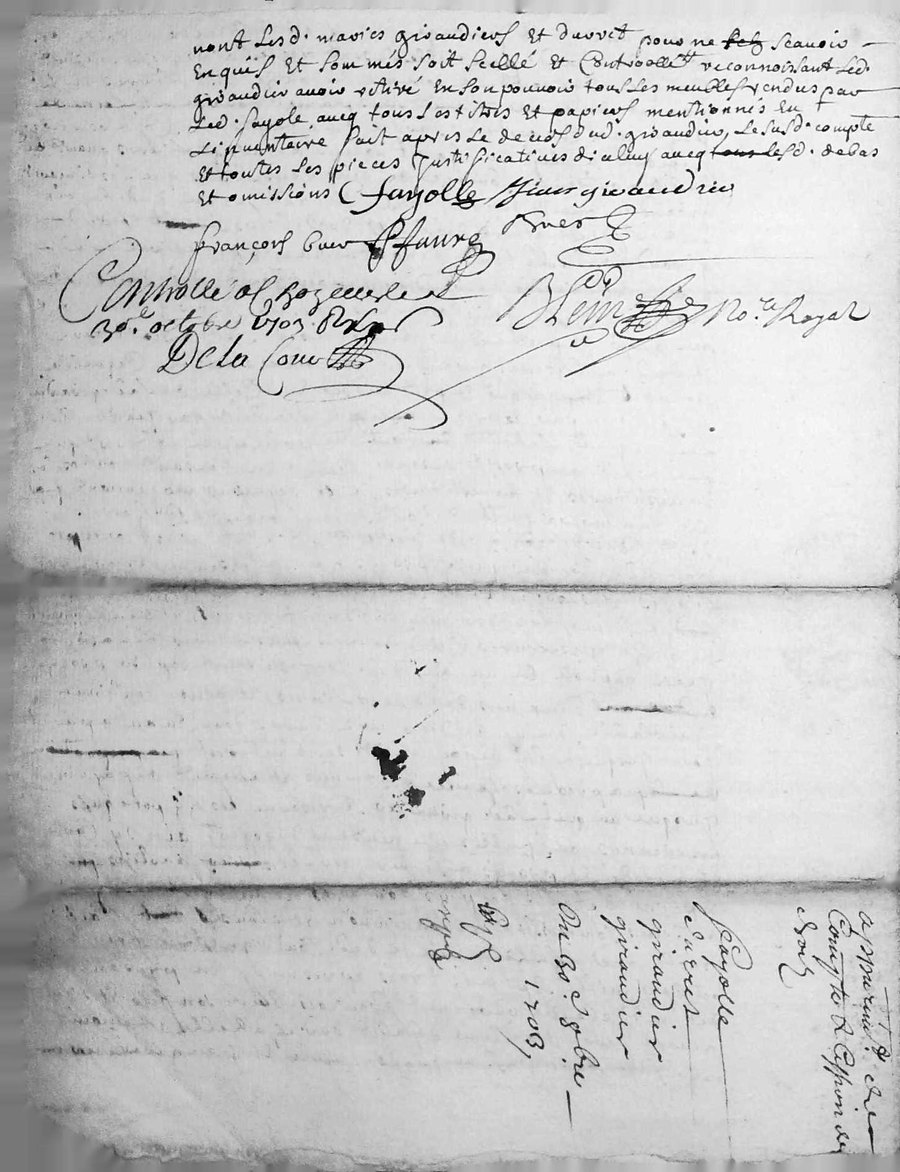 nont lesd. mariés giraudiers et durret pour ne scavoir
Enquis Et sommés soit scellé et Controollé reconnoissant led.
giraudier avoir retiré En son pouvoir tous les meubles vendus par
Led. fayole, avecq tous les titres Et papiers mentionnés En
Linventaire fait apres le deces dud. giraudier, le susd. compte
Et toutes les pieces Justificatives diceluy avecq tous lesd. debas
Et omissions fayolle giraudier
françois faure
Controllé
30e. octobre 1703
De la
No.re Royal
appurem.t de
Compte & Cession de
droitz
fayolle
durret
giraudier
giraudier
Du 30e. 8bre
1703